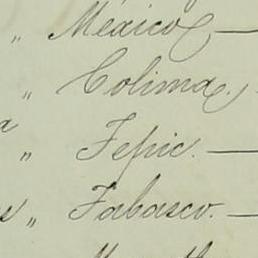 „ México —
„ Colima.,
a „ Tepic. —
s „ Tabasco. —